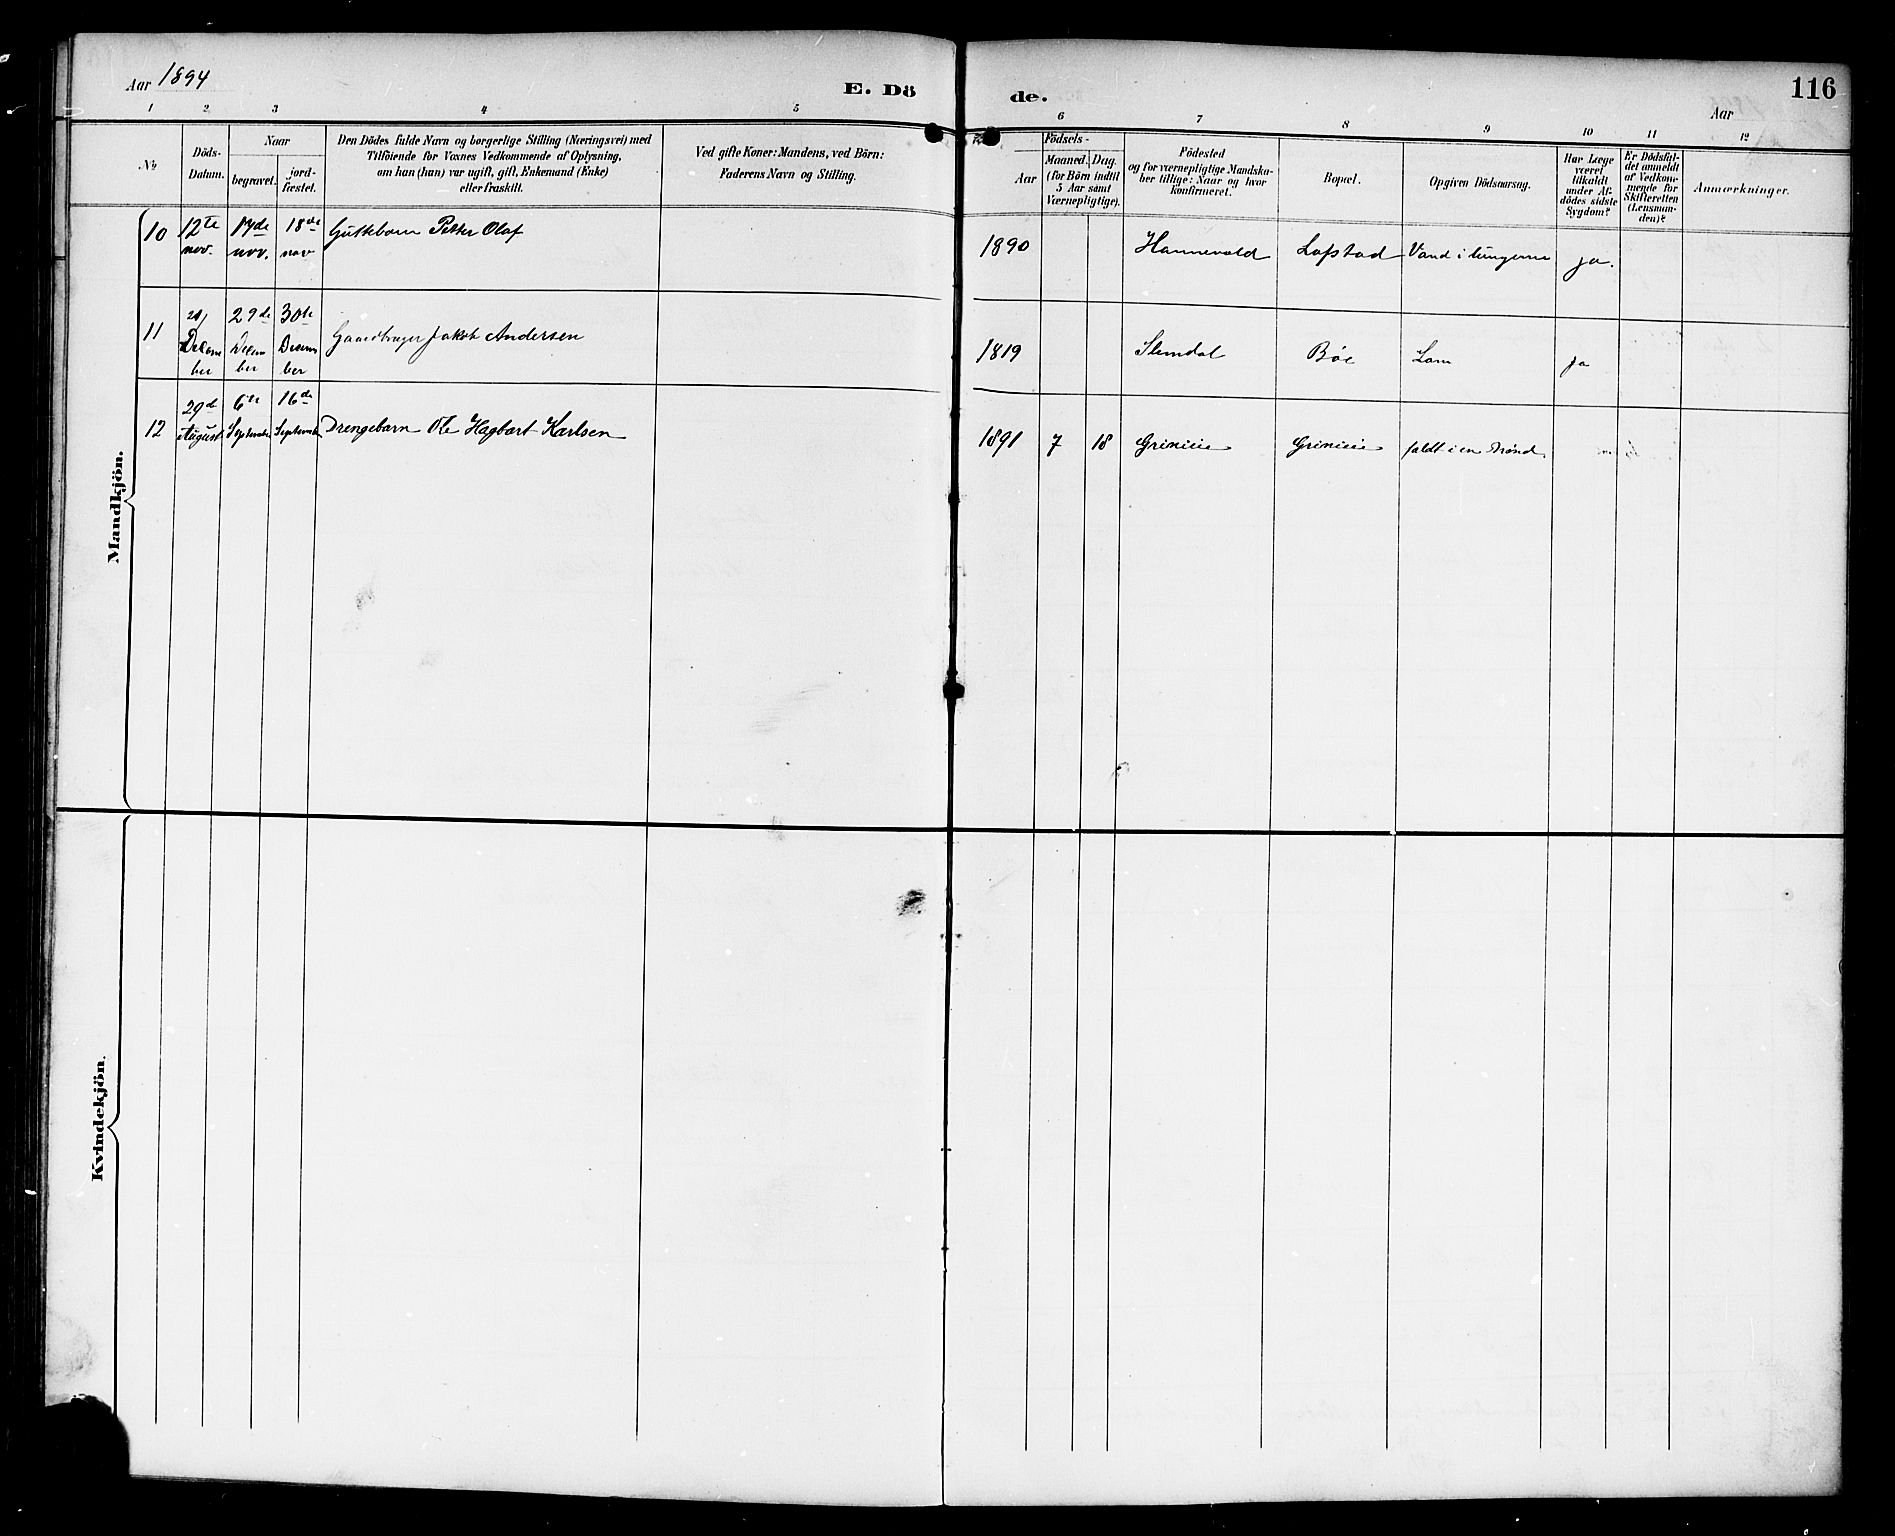 Aar 1894
E. Dö
de.
Aar
116
1 2 3 4 5 6 7 8 9 10 11 12
No
Döds-
Datum.
Naar
begravet.
jord-
fæstet.
Den Dödes fulde Navn og borgerlige Stilling (Næringsvei) med
Tilföiende for Voxnes Vedkommende af Oplysning,
om han (hun) var ugift, gift, Enkemand (Enke)
eller fraskilt.
Ved gifte Koner: Mandens, ved Börn:
Faderens Navn og Stilling.
Födsels-
Aar
Maaned.
Dag.
(for Börn indtil
5 Aar samt
Værnepligtige).
Födested
og for værnepligtige Mandska-
ber tillige: Naar og hvor
Konfirmeret.
Bopæl.
Opgiven Dödsaarsag.
Har Læge
været
tilkaldt
under Af-
dödes sidste
Sygdom?
Er Dödsfal-
det anmeldt
af Vedkom-
mende for
Skifteretten
(Lensman-
den)?
Anmærkninger.
Mandkjön.
10 12te nov. 17de nov. 18de nov Guttebarn Petter Olaf 1890 Hannevold Lofstad Vand i lungerne ja.
11 December 29de December 30te December Gaardbruger Jakob Andersen 1819 Stendal Böe Lam ja
12 29d August 6te September 16de September Drengebarn Ole Hagbart Karlsen 1891 7 18 Grinieie Grinieie faldt i en Brönd
Kvindekjön.